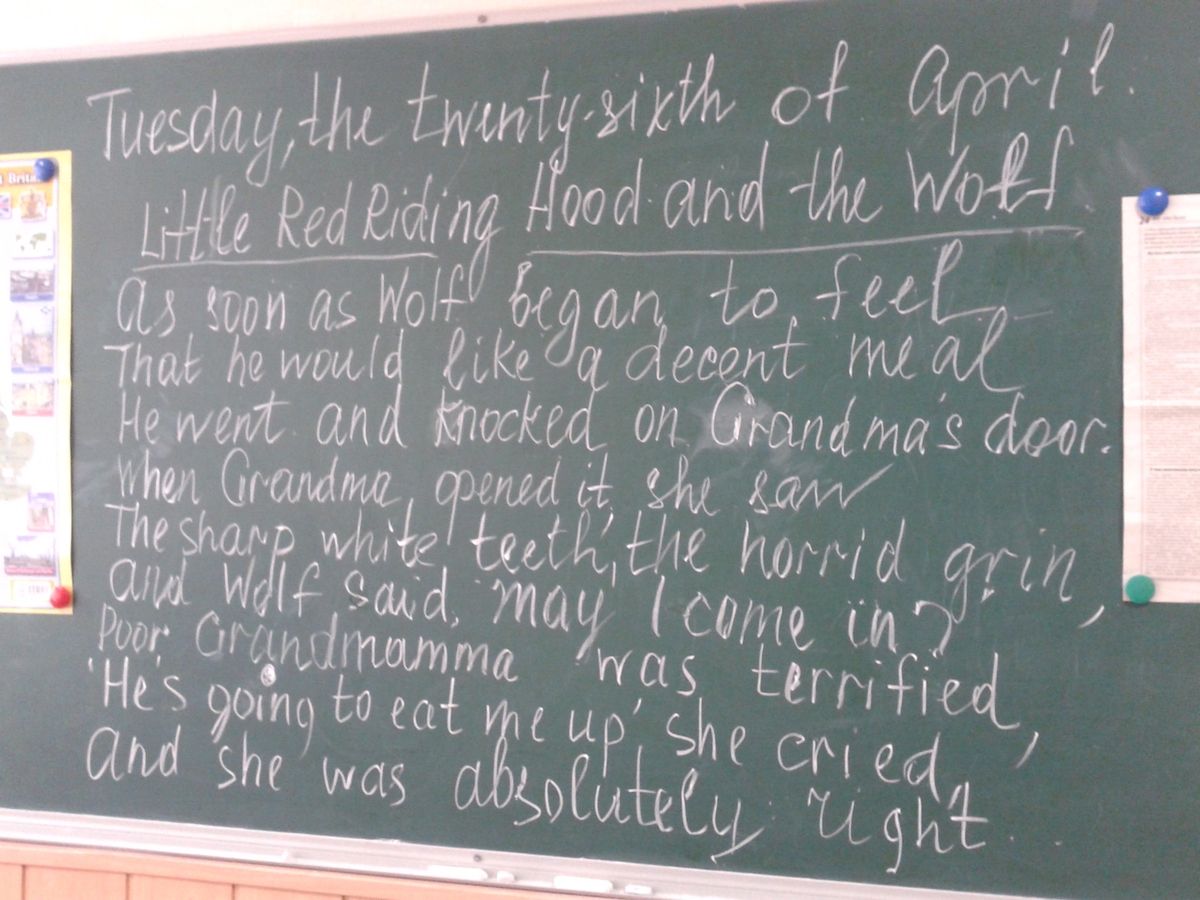 Tuesday, the twenty-sixth of April.
Little Red Riding Hood and the Wolf
As soon as Wolf began to feel
That he would like a decent meal
He went and knocked on Grandma's door.
When Grandma, opened it, she saw
The sharp white teeth, the horrid grin,
And Wolf said, "May I come in?
Poor Grandmamma was terrified,
'He's going to eat me up,' she cried,
And she was absolutely right.